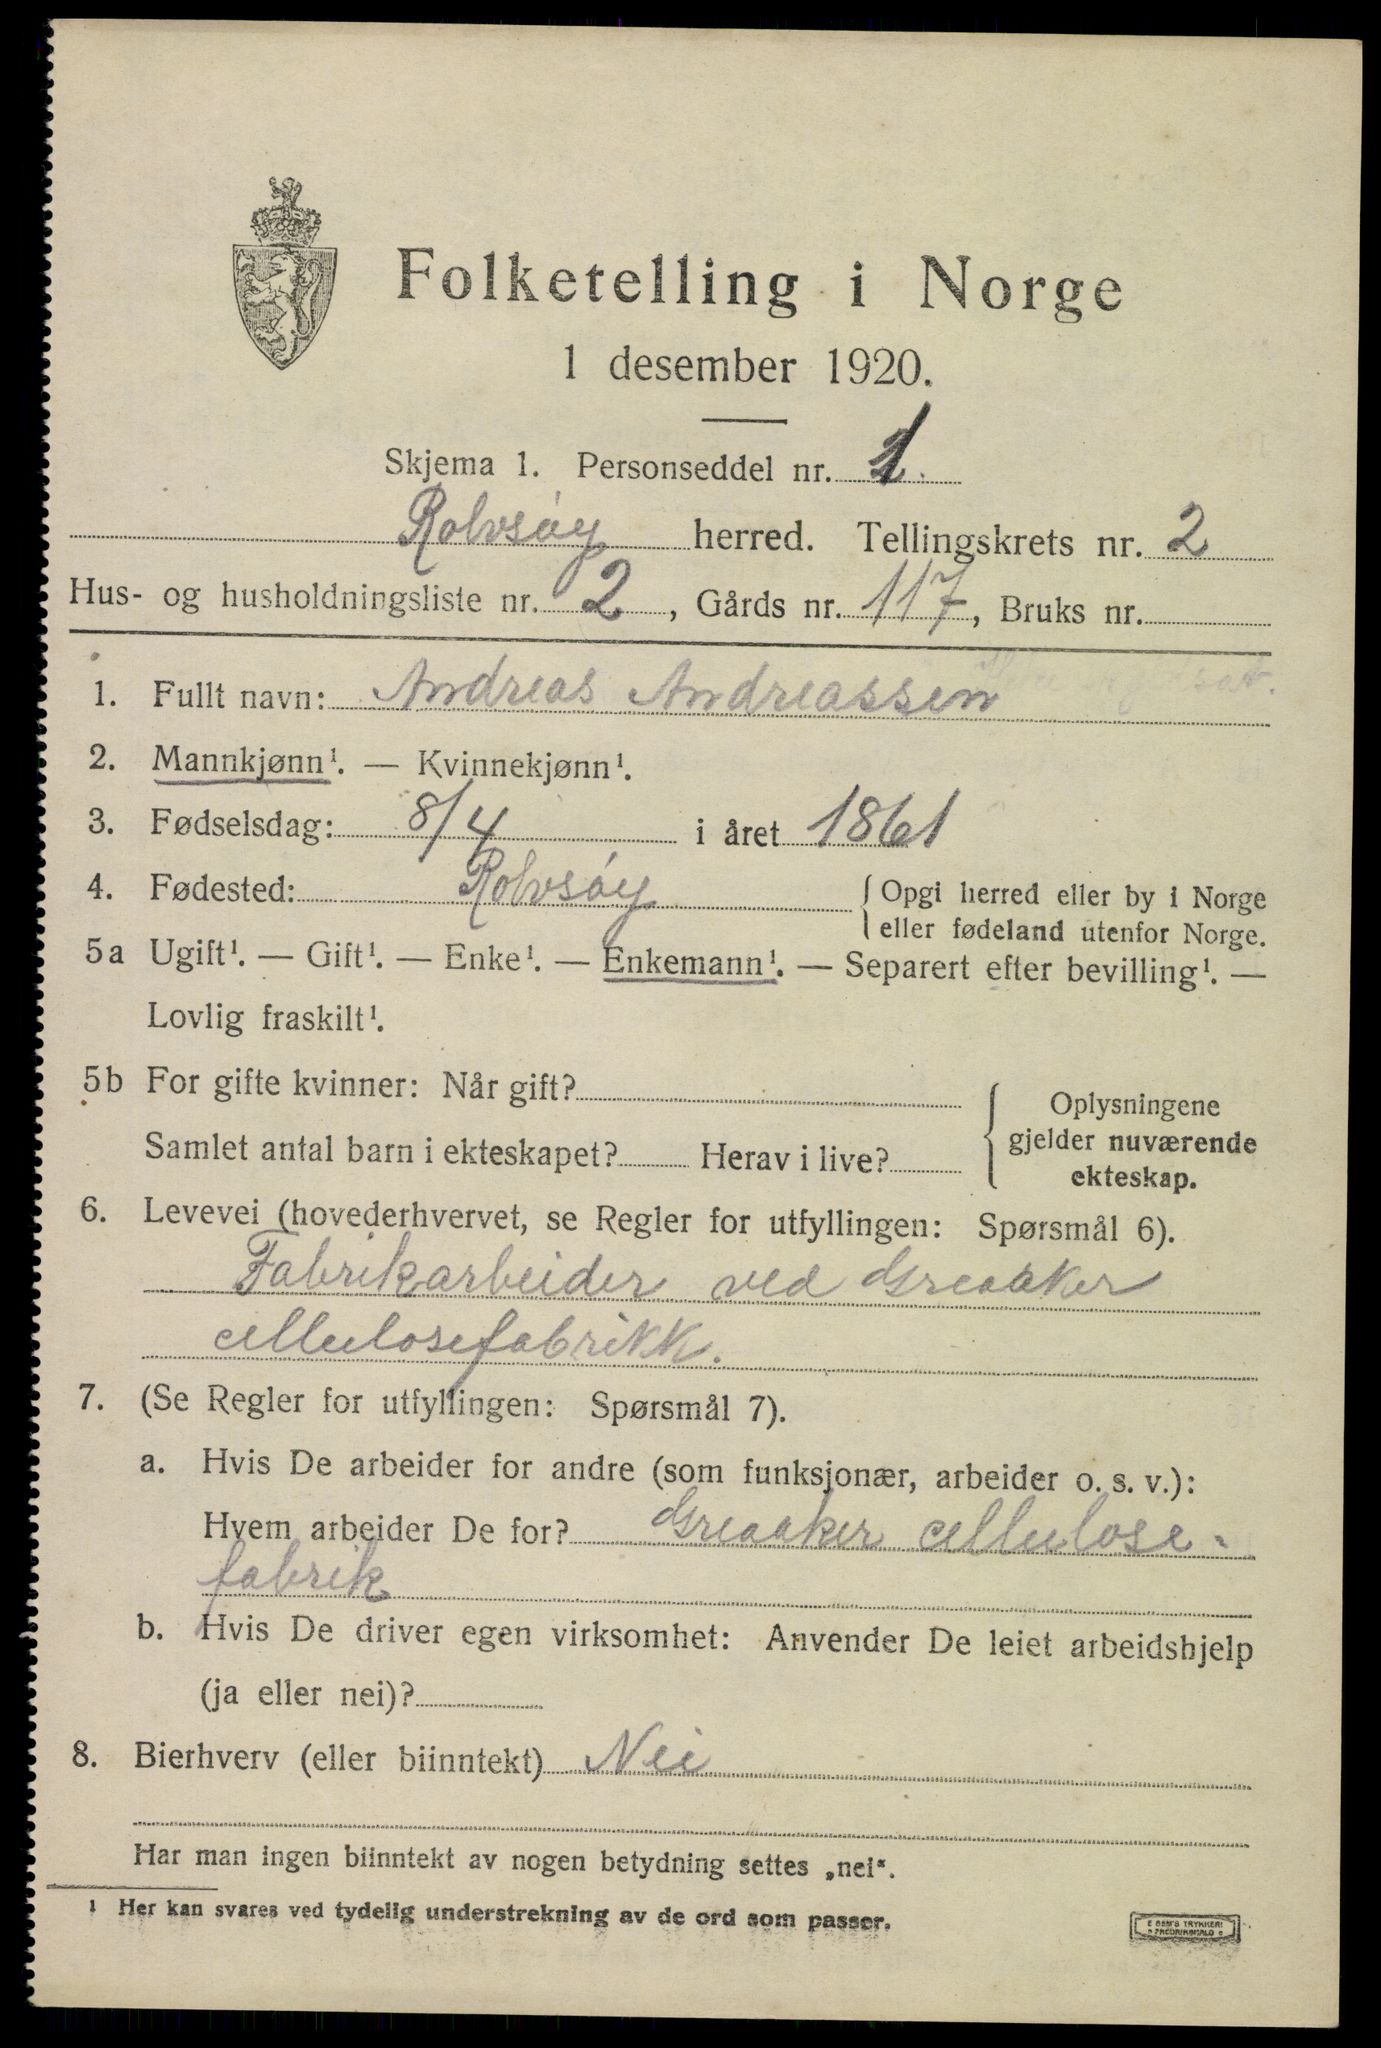 Folketelling i Norge
1 desember 1920.
Skjema 1. Personseddel nr. 1.
Rolvsøy herred. Tellingskrets nr. 2
Hus- og husholdningsliste nr. 2, Gårds nr. 117, Bruks nr.
1. Fullt navn: Andreas Andreassen
2. Mannkjønn¹. — Kvinnekjønn¹.
3. Fødselsdag: 8/4 i året 1861
4. Fødested: Rolvsøy { Opgi herred eller by i Norge
eller fødeland utenfor Norge.
5a Ugift¹. — Gift¹. — Enke¹. — Enkemann¹. — Separert efter bevilling¹. —
Lovlig fraskilt¹.
5b For gifte kvinner: Når gift?
Samlet antal barn i ekteskapet? Herav i live?
{ Oplysningene
gjelder nuværende
ekteskap.
6. Levevei (hovederhvervet, se Regler for utfyllingen: Spørsmål 6).
Fabrikarbeider ved Greaaker
cellulosefabrikk.
7. (Se Regler for utfyllingen: Spørsmål 7).
a. Hvis De arbeider for andre (som funksjonær, arbeider o. s. v.):
Hvem arbeider De for? Greaaker cellulose-
fabrik
b. Hvis De driver egen virksomhet: Anvender De leiet arbeidshjelp
(ja eller nei)?
8. Bierhverv (eller biinntekt) Nei
Har man ingen biinntekt av nogen betydning settes „nei“.
1 Her kan svares ved tydelig understrekning av de ord som passer.
E SEM'S TRYKKERI
FREDRIKSHALD